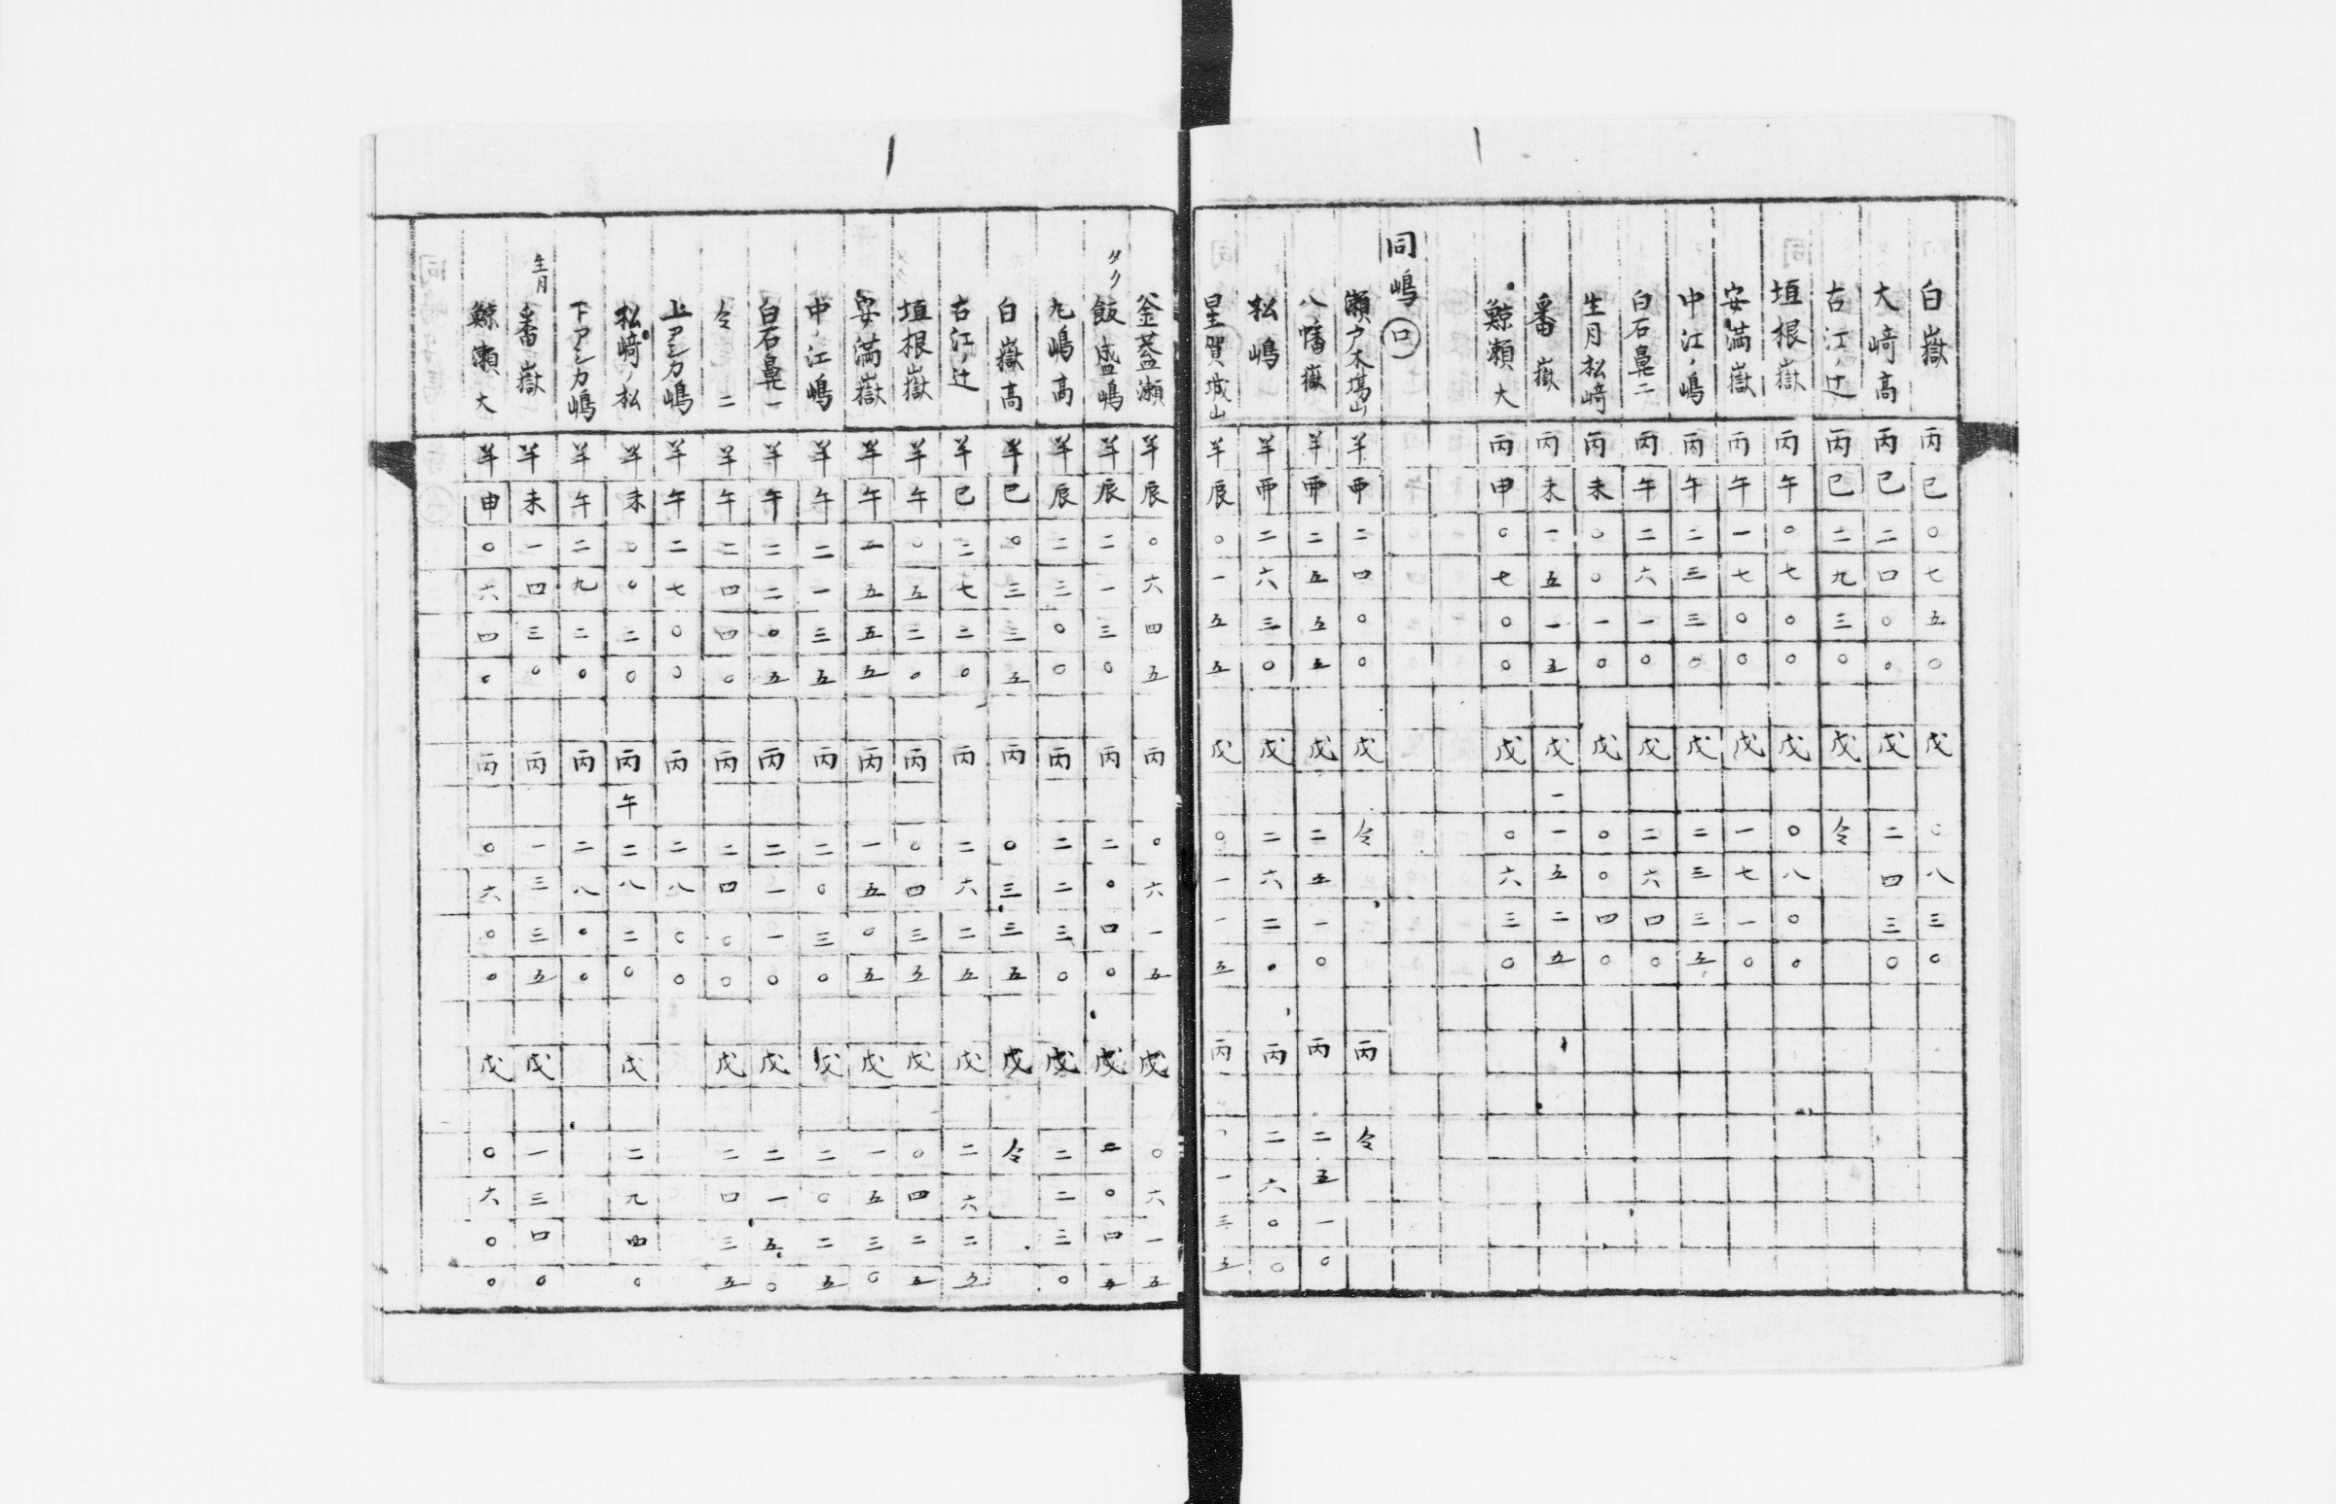 白嶽 丙 巳 〇 七 五 〇 戊 〇 八 三 〇
大﨑高 丙 巳 二 四 〇 〇 戊 二 四 三 〇
古江ノ辻 丙 巳 二 九 三 〇 戊 仝
垣根嶽 丙 午 〇 七 〇 〇 戊 〇 八 〇 〇
安満嶽 丙 午 一 七 〇 〇 戊 一 七 一 〇
中江ノ嶋 丙 午 二 三 三 〇 戊 二 三 三 五
白石鼻二 丙 午 二 六 一 〇 戊 二 六 四 〇
生月松﨑 丙 未 〇 〇 一 〇 戊 〇 〇 四 〇
番嶽 丙 未 一 五 一 五 戊 一 一 五 二 五
鯨瀬大 丙 申 〇 七 〇 〇 戊 〇 六 三 〇
同嶋 口
瀬戸木場山 羊 酉 二 四 〇 〇 戊 仝 丙 仝
八幡嶽 羊 酉 二 五 五 五 戊 二 五 一 〇 丙 二 五 一 〇
松嶋 羊 酉 二 六 三 〇 戊 二 六 二 〇 丙 二 六 〇 〇
星賀城山 羊 辰 〇 一 五 五 戊 〇 一 一 五 丙 一 三 五
釜蓋瀬 羊 辰 〇 六 四 五 丙 〇 六 一 五 戊 〇 六 一 五
タリ 飯盛嶋 羊 辰 二 一 三 〇 丙 二 〇 四 〇 戊 二 〇 四 五
九嶋高 羊 辰 二 三 〇 〇 丙 二 二 三 〇 戊 二 二 三 〇
白嶽高 羊 巳 〇 三 三 五 丙 〇 三 三 五 戊 仝
古江ノ辻 羊 巳 二 七 二 〇 丙 二 六 二 五 戊 二 六 二 五
垣根嶽 羊 午 〇 五 二 〇 丙 〇 四 三 五 戊 〇 四 二 五
安満嶽 羊 午 一 五 五 五 丙 一 五 〇 五 戊 一 五 三 〇
中ノ江嶋 羊 午 二 一 三 五 丙 二 〇 三 〇 戊 二 〇 二 五
白石鼻一 羊 午 二 二 〇 五 丙 二 一 一 〇 戊 二 一 五 〇
仝 二 羊 午 二 四 四 〇 丙 二 四 〇 〇 戊 二 四 三 五
上アシカ嶋 羊 午 二 七 〇 〇 丙 二 八 〇 〇
松﨑ノ松 羊 未 〇 〇 二 〇 丙 午 二 八 二 〇 戊 二 九 四 〇
下アシカ嶋 羊 午 二 九 二 〇 丙 二 八 〇 〇
生月 番嶽 羊 未 一 四 三 〇 丙 一 三 三 五 戊 一 三 四 〇
鯨瀬大 羊 申 〇 六 四 〇 丙 〇 六 〇 〇 戊 〇 六 〇 〇